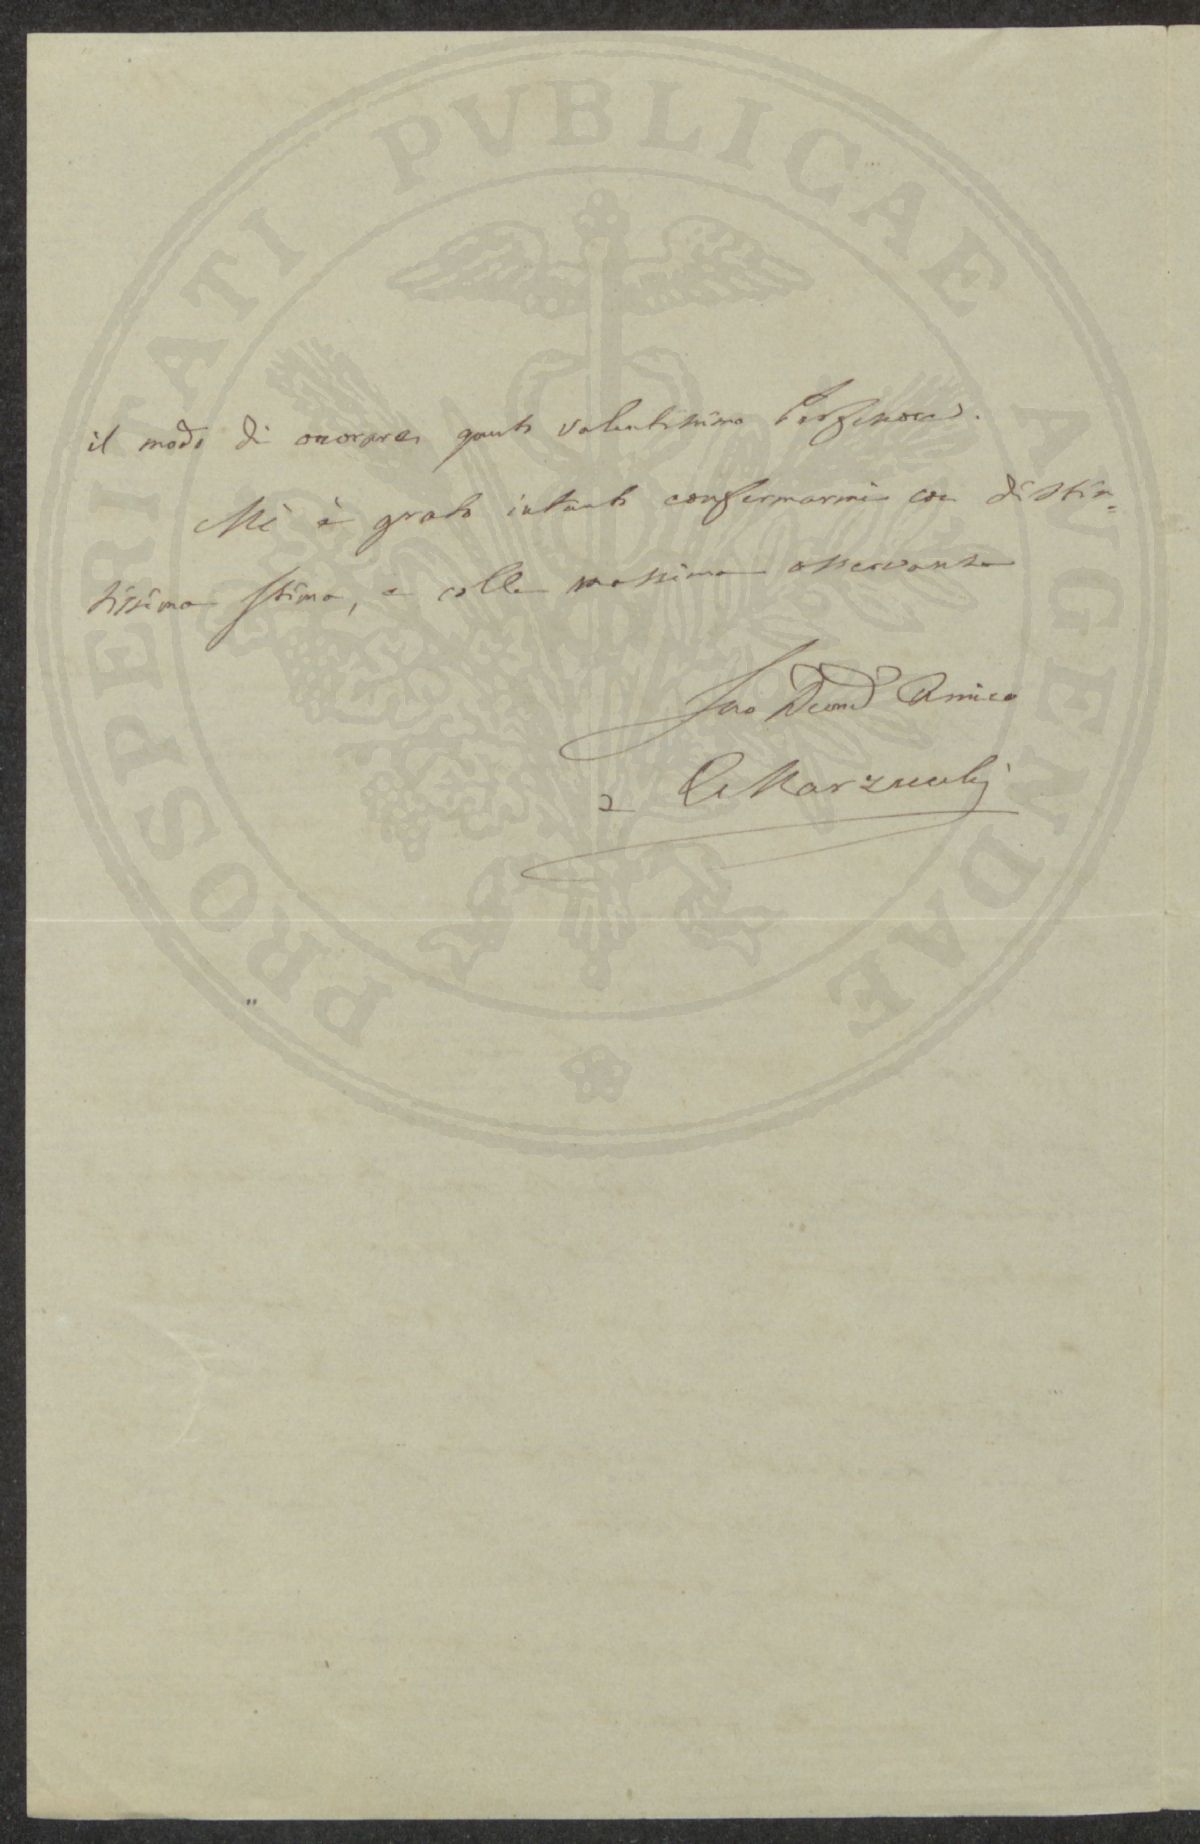 PROSPERITATI PVBLICAE AVGENDAE
il modo di onorare questo valentissimo Professore.
Mi è grato intanto confermarmi con distin=
tissima stima, e colla massima osservanza
Suo Devmo Amico
C. Marzuchi